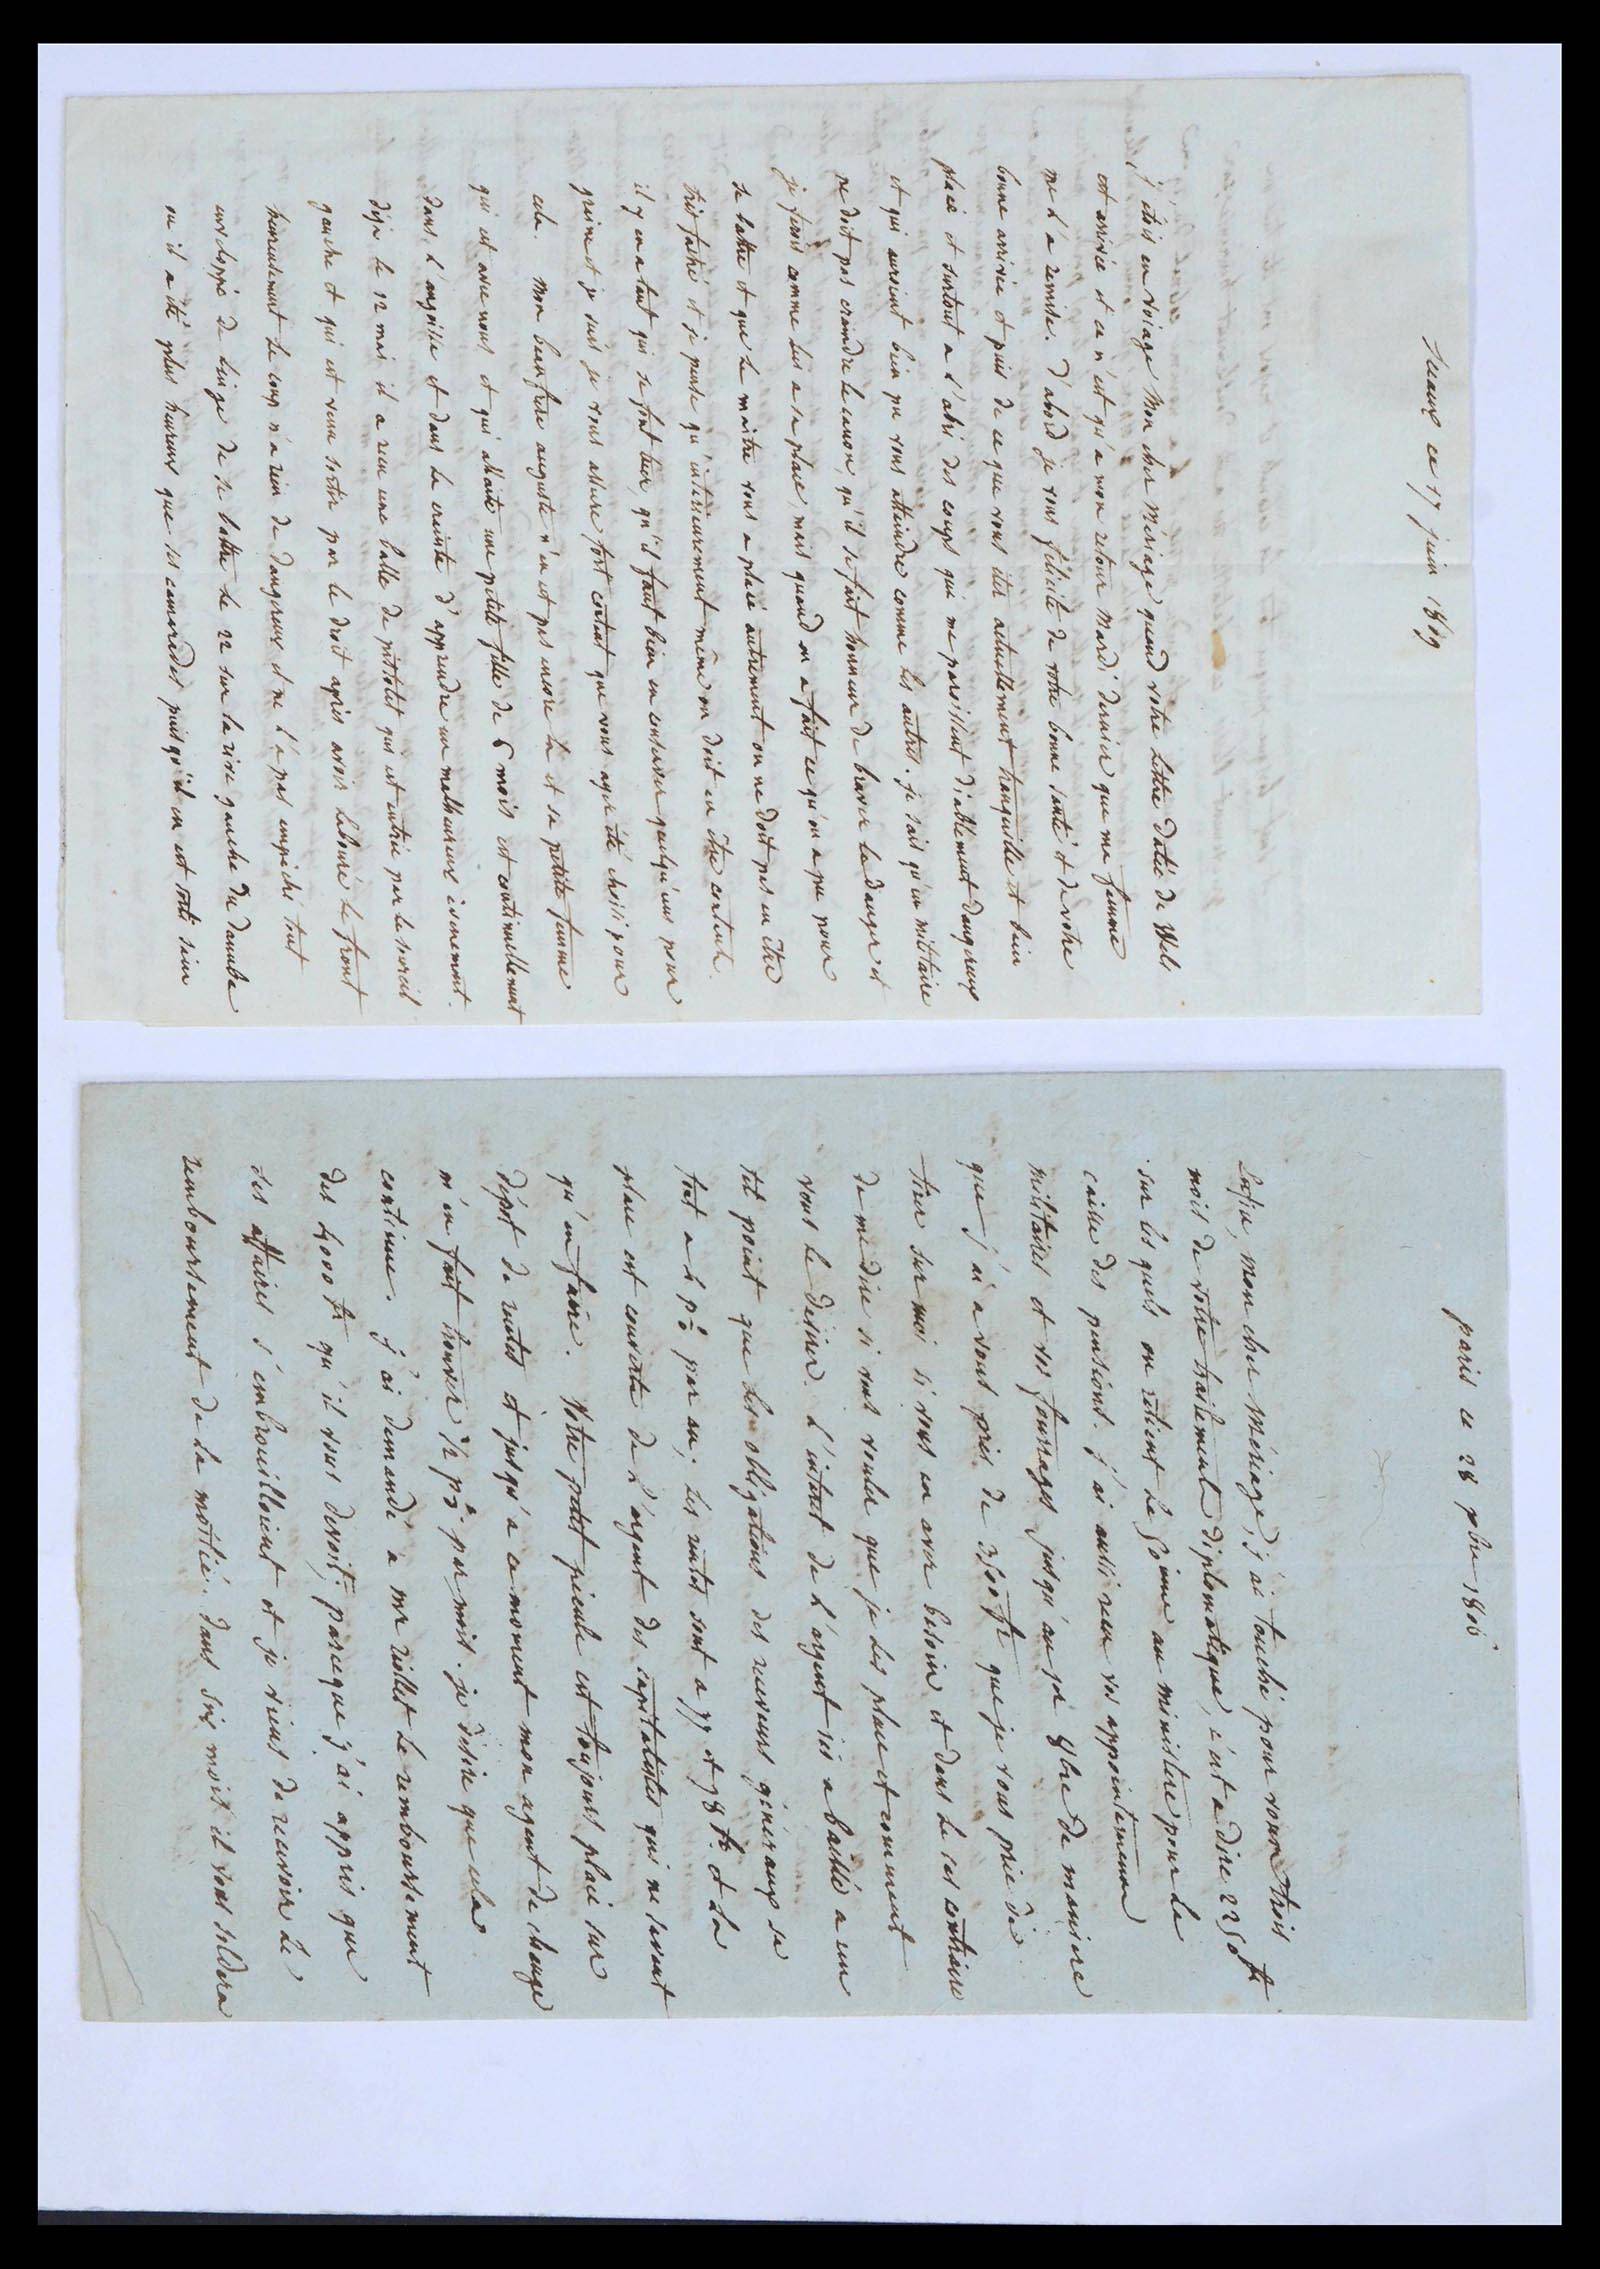 Sceaux ce 17 juin 1809
j'étois en voiage Mon cher Mériage quand votre Lettre datée de Wels
est arrivée et ce n'est qu'a mon retour Mardi dernier que ma femme
me l'a remise. D'abord je vous félicite de votre bonne santé et de votre
bonne arrivée et puis de ce que vous etes actuellement tranquille et bien
placé et surtout a l'abri des coups qui me paroissent diablement dangereux
et qui auroient bien pu vous atteindre comme les autres. je sais qu'un militaire
ne doit pas craindre le canon, qu'il se fait honneur de braver le danger et
je ferois comme lui a sa place, mais quand on a fait ce qu'on a pu pour
se battre et que le maitre vous a placé autrement on ne doit pas en être
très faché et je pense qu'interieurement même on doit en être content.
il y en a tant qui se font tuer, qu'il faut bien en conserver quelqu'uns pour
graine et je suis je vous assure fort content que vous ayez été choisi pour
cela. Mon beaufrere auguste n'en est pas encore la et sa petite femme
qui est avec nous et qui alaite une petite fille de 6 mois est continuellement
dans l'angoisse et dans la crainte d'apprendre un malheureux evenement.
déja le 12 mai il a reçu une balle de pistolet qui est entrée par le sourcil
gauche et qui est venu sortir par le droit après avoir labouré le front
heureusement le coup n'a rien de dangereux et ne l'a pas empiché tout
enveloppé de linge de se battre le 22 sur la rive gauche du danube
ou il a été plus heureux que ses camarades puisqu'il en est sorti sain
paris ce 28 9bre 1806
Enfin, mon cher Mériage, j'ai touché pour vous trois
mois de votre traitement diplomatique, c'est a dire 2250 fr
sur les quels on retient le 50ème au ministere pour la
caisse des pensions. j'ai aussi reçu vos appointemens
militaires et vos fourrages jusqu'au 1er 8bre de maniere
que j'ai a vous près de 3600 fr que je vous prie de
tirer sur moi si vous en avez besoin et dans le cas contraire
de me dire si vous voulez que je les place et comment
vous le desirez. L'interet de l'argent ici a baissé a un
tel point que les obligations des receveurs généraux se
font a p% par an; les rentes sont a 77 et 78 fr. et la
place est couverte de l'argent des capitalistes qui ne savent
qu'en faire. Votre petit pécule est toujours placé sur
dépot de rentes et jusqu'a ce moment mon agent de change
m'en fait trouver p% par mois. je désire que cela
continue. j'ai demandé a mr le remboursement
des 4000 fr qu'il vous devoit, parceque j'ai appris que
ses affaires s'embrouilloient et je viens de recevoir le
remboursement de la moitié. dans six mois il vous soldera